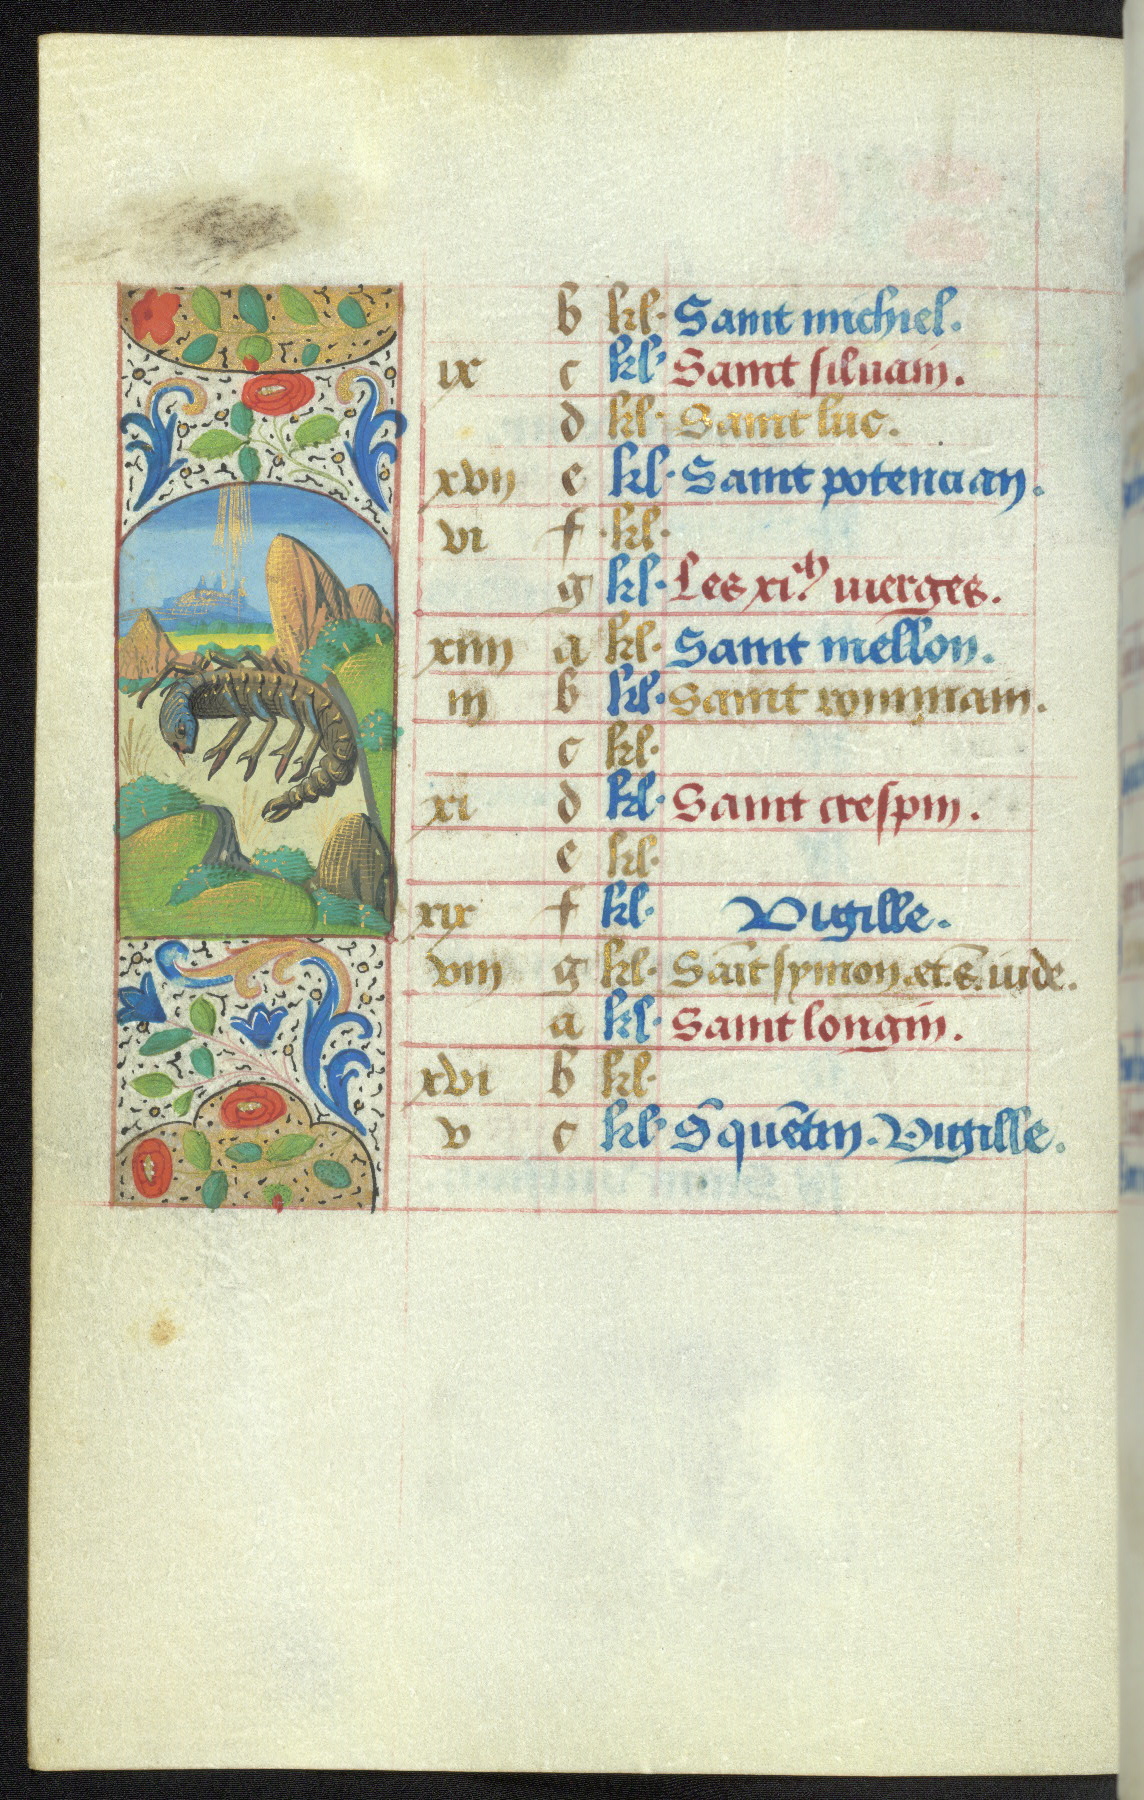 b kl. Saint michiel.
ix c kl. Saint siluain.
d kl. Saint luc.
xvii e kl. Saint potencian.
vi f kl.
g kl. Les xi.ᵐ vierges.
xiiii a kl. Saint mellon.
iii b kl. Saint rommain.
c kl.
xi d kl. Saint crespin.
e kl.
xix f kl. Vigille.
viii g kl. Saīt symon et .s. iude.
a kl. Saint longin.
xvi b kl.
v c kl. S̄ quētin. Vigille.